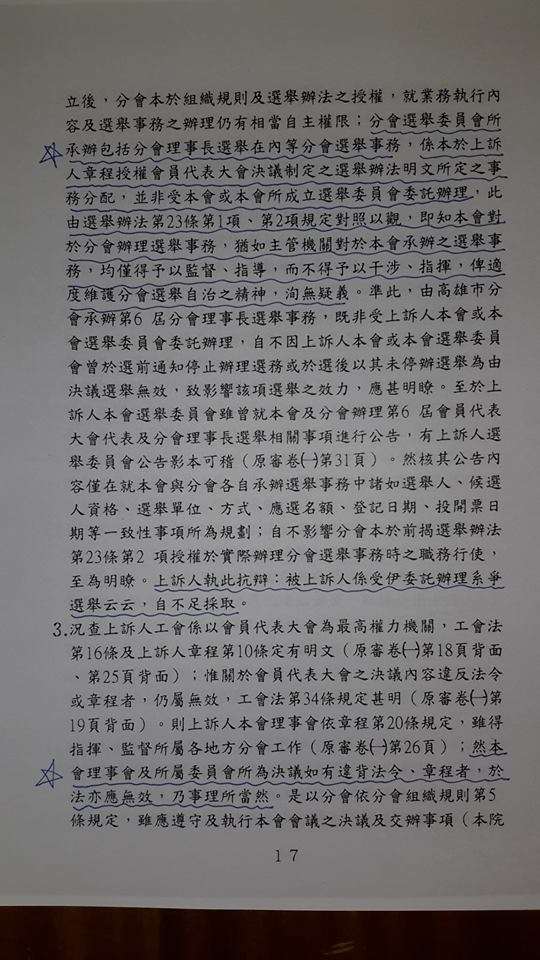 立後，分會本於組織規則及選舉辦法之授權，就業務執行內
容及選舉事務之辦理仍有相當自主權限；分會選舉委員會所
承辦包括分會理事長選舉在內等分會選舉事務，係本於上訴
人章程授權會員代表大會決議制定之選舉辦法明文所定之事
務分配，並非受本會或本會所成立選舉委員會委託辦理，此
由選舉辦法第23條第1項、第2項規定對照以觀，即知本會對
於分會辦理選舉事務，猶如主管機關對於本會承辦之選舉事
務，均僅得予以監督、指導，而不得予以干涉、指揮，俾適
度維護分會選舉自治之精神，洵無疑義。準此，由高雄市分
會承辦第6 屆分會理事長選舉事務，既非受上訴人本會或本
會選舉委員會委託辦理，自不因上訴人本會或本會選舉委員
會曾於選前通知停止辦理選務或於選後以其未停辦選舉為由
決議選舉無效，致影響該項選舉之效力，應甚明瞭。至於上
訴人本會選舉委員會雖曾就本會及分會辦理第6 屆會員代表
大會代表及分會理事長選舉相關事項進行公告，有上訴人選
舉委員會公告影本可稽（原審卷㈠第31頁）。然核其公告內
容僅在就本會與分會各自承辦選舉事務中諸如選舉人、候選
人資格、選舉單位、方式、應選名額、登記日期、投開票日
期等一致性事項所為規劃；自不影響分會本於前揭選舉辦法
第23條第2 項授權於實際辦理分會選舉事務時之職務行使，
至為明瞭。上訴人執此抗辯：被上訴人係受伊委託辦理系爭
選舉云云，自不足採取。
3.況查上訴人工會係以會員代表大會為最高權力機關，工會法
第16條及上訴人章程第10條定有明文（原審卷㈠第18頁背面
、第25頁背面）；惟關於會員代表大會之決議內容違反法令
或章程者，仍屬無效，工會法第34條規定甚明（原審卷㈠第
19頁背面）。則上訴人本會理事會依章程第20條規定，雖得
指揮、監督所屬各地方分會工作（原審卷㈠第26頁）；然本
會理事會及所屬委員會所為決議如有違背法令、章程者，於
法亦應無效，乃事理所當然。是以分會依分會組織規則第5
條規定，雖應遵守及執行本會會議之決議及交辦事項（本院
17